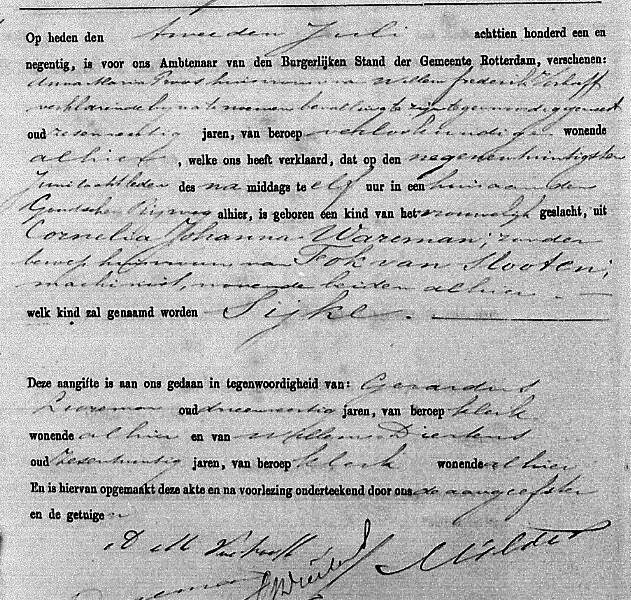 Op heden den tweeden Juli achttien honderd een en
negentig, is voor ons Ambtenaar van den Burgerlijken Stand der Gemeente Rotterdam, verschenen:
Anna Maria huisvrouw van Willem Frederik
verklarende bij na te noemen bevalling te zijn tegenwoordig geweest
oud zesenveertig jaren, van beroep verloskundige wonende
alhier, welke ons heeft verklaard, dat op den negenentwintigsten
Juni laatstleden des na middags te elf uur in een huis aan den
Goudschen Rijweg alhier, is geboren een kind van het vrouwelijk geslacht, uit
Cornelia Johanna Wareman; zonder
beroep huisvrouw van Fok van Slooten;
machinist, wonende beiden alhier
welk kind zal genaamd worden Sijke.
Deze aangifte is aan ons gedaan in tegenwoordigheid van: Gerardus
oud drieenveertig jaren, van beroep klerk
wonende alhier en van Willem Diertens
oud jaren, van beroep klerk wonende alhier
En is hiervan opgemaakt deze akte en na voorlezing onderteekend door ons de aangeefster
en de getuigen
A M
Mulder